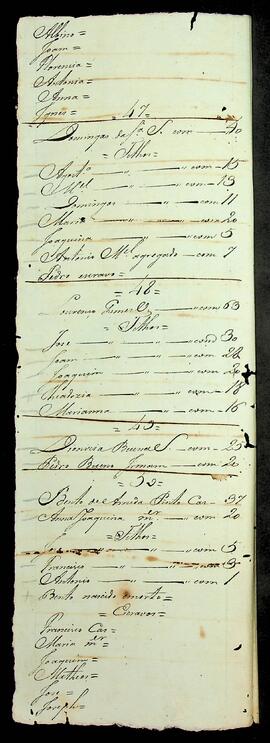 Albino =
Joam =
Florencia =
Antonia =
Anna =
Ignes =
= 47 =
Domingos da S.ª S. com — 50
= Filhos =
— " — " com — 15
M.el — " — " com — 13
Domingos — " — com — 11
Maria — " — " com — 20
Joaquina — " — " com — 5
Antonio M.el agregado — com — 7
Pedro escravo =
= 48 =
Lourenço — " com — 63
= Filhos =
Jose — " — " — " com — 30
Joam — " — " — " com — 28
Joaquim — " — " com — 20
Theodozia — " — " com — 18
Marianna — " — " com — 16
= 49 =
Bueno S. — com — 25
Pedro Bueno Irmam — com — 20
= 50 =
Bento de Pinto Cas — 37
Anna Joaquina m.er — " com — 20
= Filhos =
— " — " com — 5
Francisco — " — " com — 3
Antonio — " — " com — 1
Bento nascido e morto =
= Escravos =
Francisco Cas =
Maria m.er
Joaquim =
Matheos =
Jose =
Joseph =